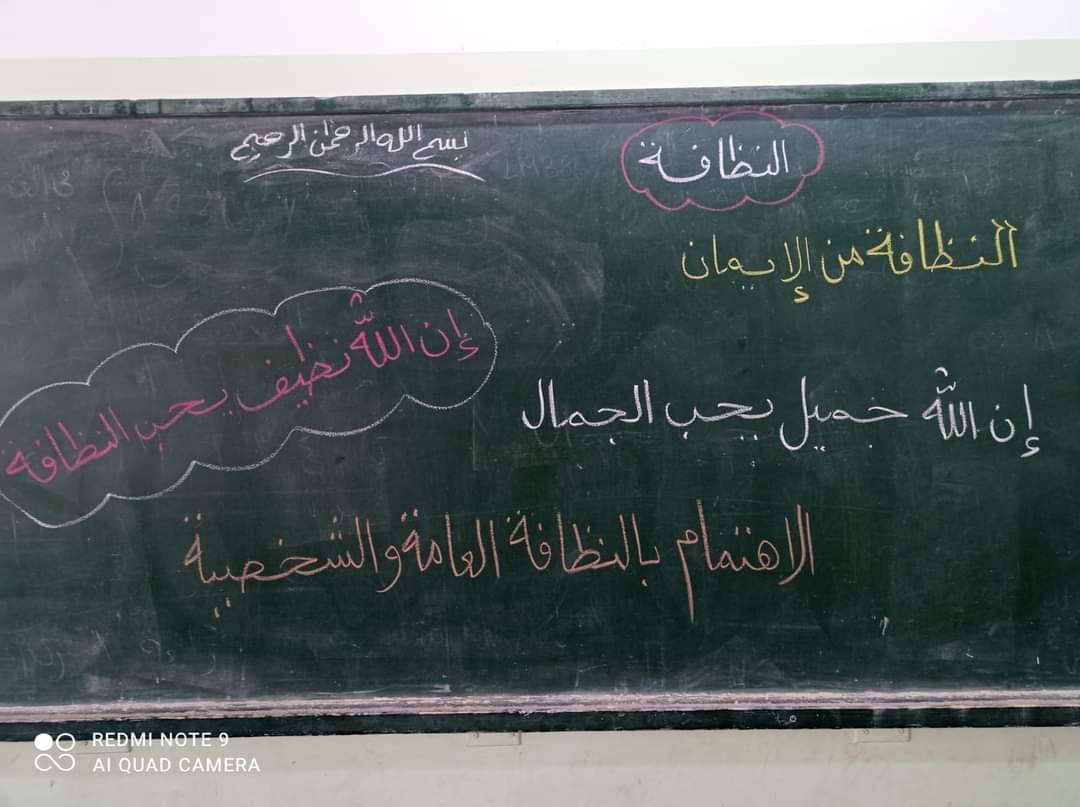 بسم الله الرحمن الرحيم
النظافة
النظافة من الإيمان
إن الله نظيف يحب النظافة
إن الله جميل يحب الجمال
الاهتمام بالنظافة العامة والشخصية
REDMI NOTE 9
AI QUAD CAMERA